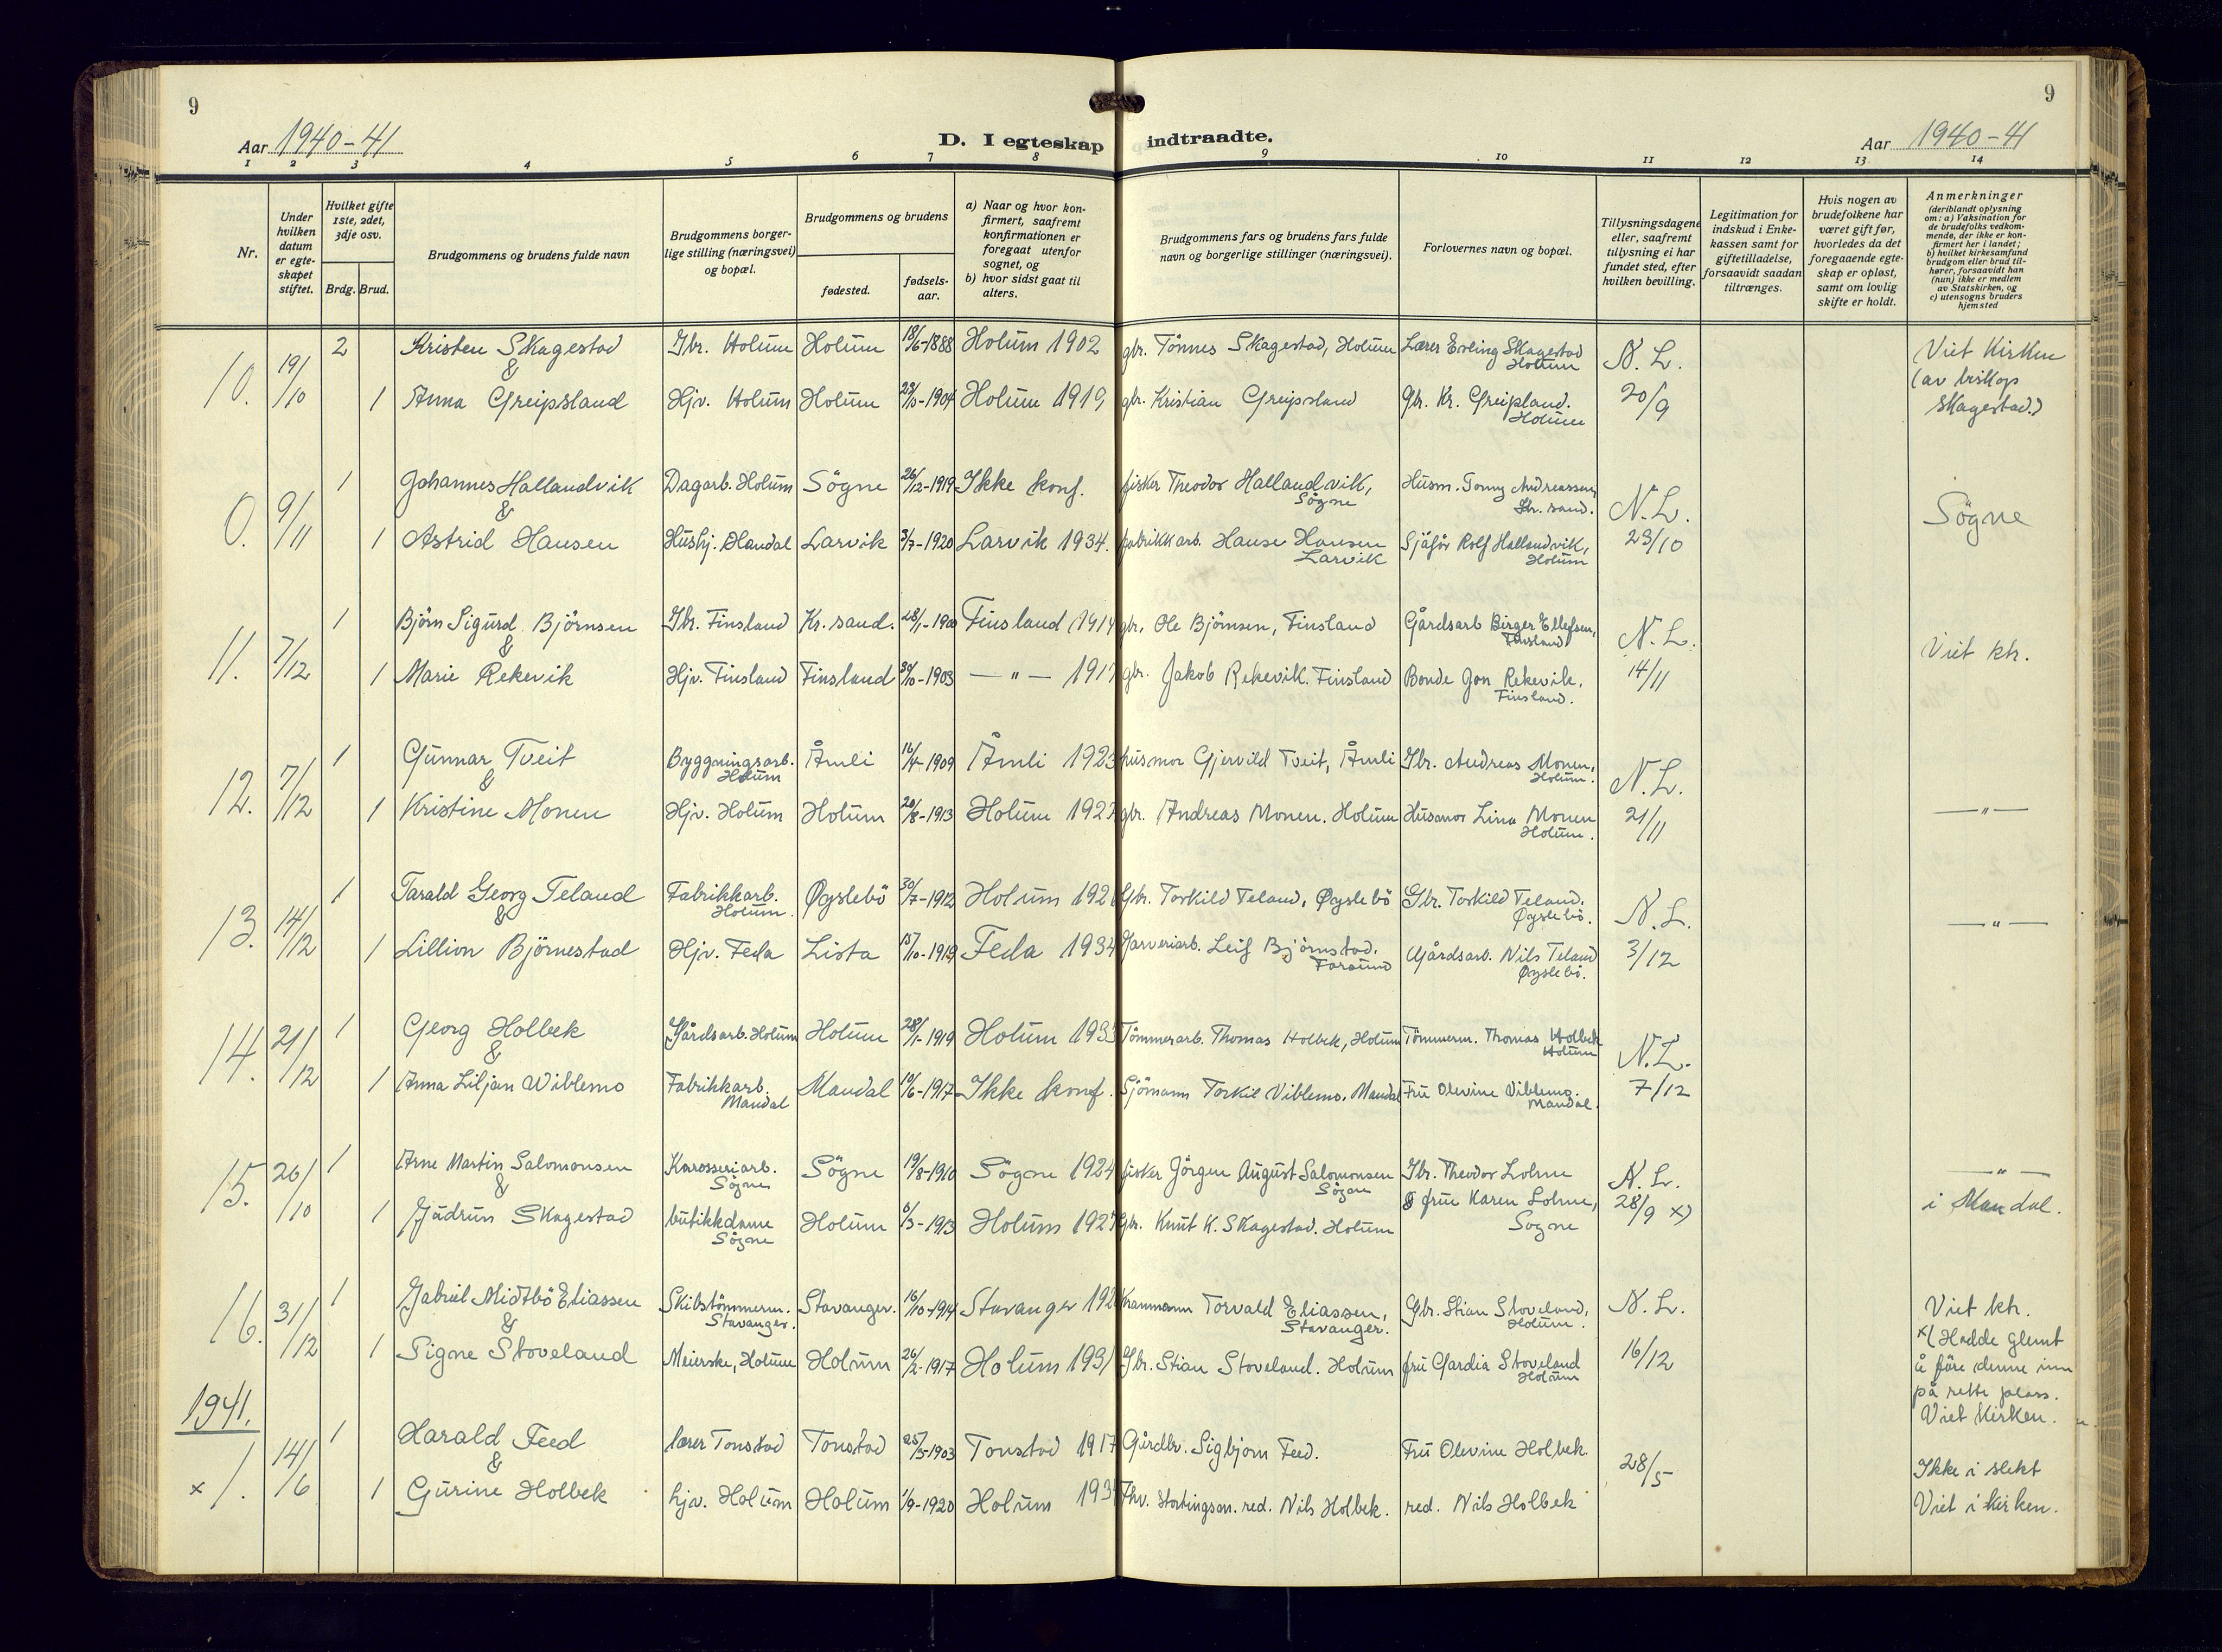 9
9
Aar 1940-41
D. I egteskap indtraadte.
Aar 1940-41
1 2 3 4 5 6 7 8 9 10 11 12 13 14
Nr.
Under hvilken datum er egteskapet stiftet.
Hvilket gifte 1ste, 2det, 3dje osv.
Brdg. Brud.
Brudgommens og brudens fulde navn
Brudgommens borgerlige stilling (næringsvei) og bopæl.
Brudgommens og brudens
fødested.
fødselsaar.
a) Naar og hvor konfirmert, saafremt konfirmationen er foregaat utenfor sognet, og
b) hvor sidst gaat til alters.
Brudgommens fars og brudens fars fulde navn og borgerlige stillinger (næringsvei).
Forlovernes navn og bopæl.
Tillysningsdagene eller, saafremt tillysning ei har fundet sted, efter hvilken bevilling.
Legitimation for indskud i Enkekassen samt for giftetilladelse, forsaavidt saadan tiltrænges.
Hvis nogen av brudefolkene har været gift før, hvorledes da det foregaaende egteskap er opløst, samt om lovlig skifte er holdt.
Anmerkninger
(deriblandt oplysning om: a) Vaksination for de brudefolks vedkommende, der ikke er konfirmert her i landet;
b) hvilket kirkesamfund brudgom eller brud tilhører, forsaavidt han (hun) ikke er medlem av Statskirken, og
c) utensogns bruders hjemsted
10. 19/10 2 Kristen Skagestad Gbr. Holum Holum 18/6-1888 Holum 1902 gbr. Tönnes Skagestad, Holum Lærer Erling Skagestad Holum N. L. Viet Kirken
&
1 Anna Greipsland Hjv. Holum Holum 1904 Holum 1919 gbr. Kristian Greipsland Gbr. Kr. Greipland. Holum 20/9 (av biskop Skagestad.)
0. 9/11 1 Johannes Hallandvik Dagarb. Holum Sögne 26/12-1919 Ikke konf. fisker Theodor Hallandvik, Sögne Husm. Tomy Andreassen, Kr. sand. N.L. Sögne
&
1 Astrid Hansen Hushj. Mandal Larvik 3/7-1920 Larvik 1934. fabrikkarb. Hansen Larvik Sjåför Rolf Hallandvik, Holum 23/10
11. 7/12 1 Björn Sigurd Björnsen Gbr. Finsland Kr. sand. 28/1-1900 Finsland 1914 gbr. Ole Björnsen, Finsland Gårdsarb Birger Ellefsen, Finsland N. L. Viet ktr.
&
1 Marie Rekevik Hjv. Finsland Finsland 30/10-1903 — " — 1917 gbr. Jakob Rekevik. Finsland Bonde Jon Rekevik, Finsland. 14/11
12. 7/12 1 Gunnar Tveit Byggningsarb. Holum Åmli 16/4-1909 Åmli 1923 husmor Gjervild Tveit, Åmli Gbr. Andreas Monen, Holum. N.L.
&
1 Kristine Monen Hjv. Holum Holum 20/8-1913 Holum 192 gbr. Andreas Monen. Holum Husmor Lina Monen Holum. 21/11 — " —
13. 14/12 1 Tarald Georg Teland Fabrikkarb. Holum. Øyslebö 30/7-1912 Holum 192 Gbr. Torkild Teland, Øyslebö Gbr. Torkild Teland. Øyslebö. N.L. — " —
&
1 Lillion Björnestad Hjv. Feda Lista 15/10-1919 Feda 1934 Garveriarb. Leif Björnstad. Farsund Gårdsarb. Nils Teland Øyslebö. 3/12
14. 21/12 1 Georg Holbek Gårdsarb. Holum Holum 28/1-1919 Holum 193 Tömmerarb. Thomas Holbek, Holum Tömmerm. Thomas Holbek Holum N.L.
&
1 Anna Liljan Viblemo Fabrikkarb. Mandal Mandal 10/6-1917 Ikke konf. Sjömann Torkil Viblemo. Mandal Fru Olevine Viblemo. Mandal. 7/12
15. 26/10 1 Arne Martin Salomonsen Karosseriarb. Sögne Sögne 19/8-1910 Sögne 1924 fisker Jörgen August Salomonsen Sögne Gbr. Theodor Lohne N. L. — " —
&
1 Gudrun Skagestad butikkdame Sögne Holum 6/3-1913 Holum 192 Gbr. Knut K. Skagestad. Holum & frue Karen Lohne, Sogne 28/9 x) i Mandal.
16. 31/12 1 Gabriel Midtbö Eliassen Skibstömmerm. Stavanger. Stavanger. 16/10-1914 Stavanger 192 Torvald Eliassen, Stavanger. Gbr. Stian Stoveland, Holum. N. L. Viet ktr.
&
1 Signe Stoveland Meierske, Holum Holum 26/2-1917 Holum 1931 Gbr. Stian Stoveland. Holum fru Gardia Stoveland Holum 16/12
x( Hadde glemt å före denne inn på rette plass. Viet Kirken.
1941.
x 1. 14/6 1 Harald Feed lærer Tonstad Tonstad 25/5-1903 Tonstad 1917 Gårdbr. Sigbjorn Feed. Fru Olevine Holbek 28/5 Ikke i slekt
&
1 Gurine Holbek hjv. Holum Holum 1/9-1920 Holum 193 Fhv. Stortingsm. red. Nils Holbek. red. Nils Holbek Viet i kirken.